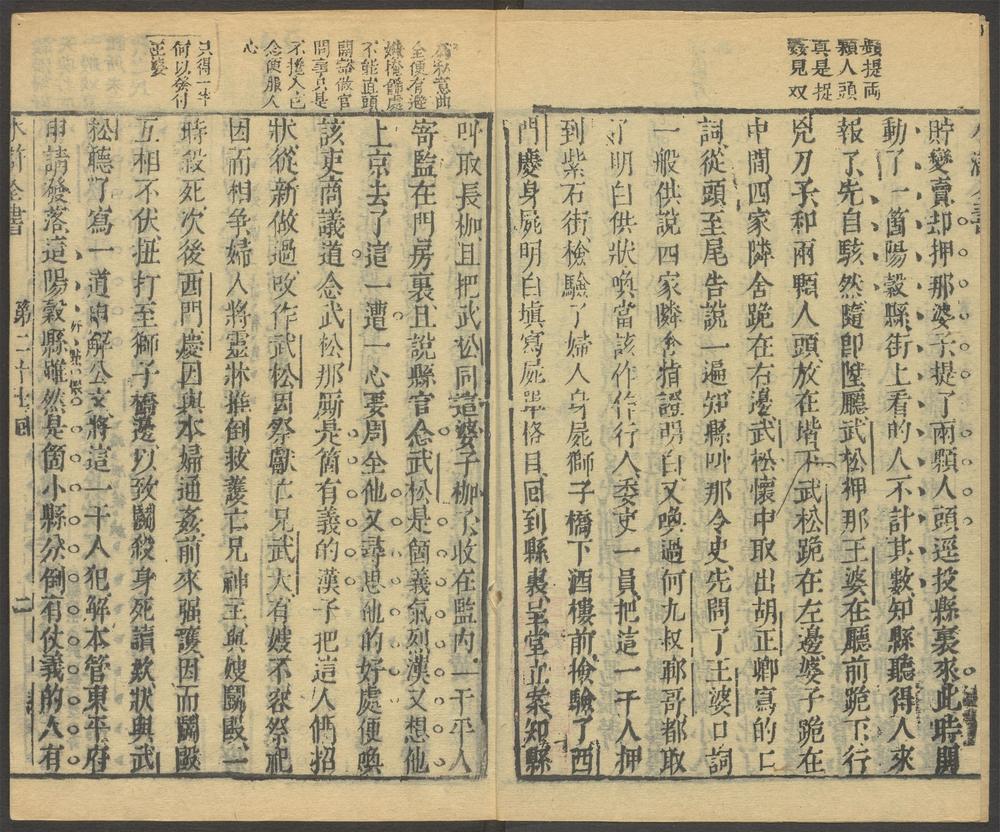 顆提両
顆人頭
真是捉
姦見双
貯變賣却押那婆子提了兩顆人頭逕投縣裏來此時鬨
動了一箇陽穀縣街上看的人不計其數知縣聽得人來
報了先自駭然隨即陞廳武松押那王婆在廳前跪下行
兇刀子和兩顆人頭放在堦下武松跪在左邊婆子跪在
中間四家隣舍跪在右邊武松懷中取出胡正卿寫的口
詞從頭至尾告說一遍知縣叫那令史先問了王婆口詞
一般供說四家隣舍指證明白又喚過何九叔鄆哥都取
了明白供狀喚當該仵作行人委吏一員把這一干人押
到紫石街檢驗了婦人身屍獅子橋下酒樓前檢驗了西
門慶身屍明白填寫屍單格目回到縣裏呈堂立案知縣
為私意曲
全便有遮
嫌掩飾處
不能直頭
開豁做官
問事只是
不攙入己
念便服人
心
只得一半
何以發付
王婆
叫取長枷且把武松同這婆子枷了收在監內一干平人
寄監在門房裏且說縣官念武松是箇義氣烈漢又想他
上京去了這一遭一心要周全他又尋思他的好處便喚
該吏商議道念武松那厮是箇有義的漢子把這人們招
狀從新做過改作武松因祭獻亡兄武大有嫂不容祭祀
因而相爭婦人將靈牀推倒救護亡兄神主與嫂鬬毆一
時殺死次後西門慶因與本婦通姦前來强護因而鬬毆
互相不伏扭打至獅子橋邊以致鬬殺身死讀款狀與武
松聽了寫一道申解公文將這一干人犯解本管東平府
申請發落這陽穀縣雖然是箇小縣分倒有仗義的人有
水滸全書
第二十七回
二